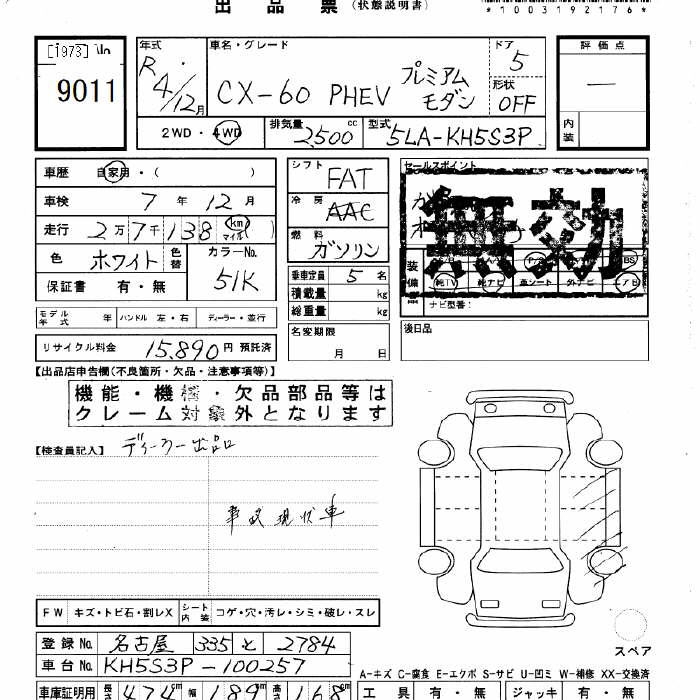 出品票（状態説明書）
*1003192176*
[1973]
9011
年式 R 4/12月
車名・グレード CX-60 PHEV プレミアム モダン
ドア 5
形状 OFF
評価点 —
内装
2WD・4WD
排気量 2,500 cc
型式 5LA-KH5S3P
車歴 自家用・( )
車検 7年 12月
走行 2万7千138 km マイル ( )
色 ホワイト 色替
カラーNo. 51K
保証書 有・無
シフト FAT
冷房 AAC
燃料 ガソリン
乗車定員 5名
積載量 kg
総重量 kg
名変期限 月 日
セールスポイント
無効
装備
純TV 純ナビ 革シート 外ナビ エアB
ナビ型番：
後日品
モデル年式 年 ハンドル 左・右 ディーラー・並行
リサイクル料金 15,890円 預託済
【出品店申告欄(不良箇所・欠品・注意事項等)】
機能・機構・欠品部品等は
クレーム対象外となります
【検査員記入】 ディーラー出品
事故現状車
FW キズ・トビ石・割レX シート内装 コゲ・穴・汚レ・シミ・破レ・スレ
スペア
登録No. 名古屋 335 と 2784
車台No. KH5S3P-100257
A-キズ C-腐食 E-エクボ S-サビ U-凹ミ W-補修 XX-交換済
車庫証明用 長さ 474cm 幅 189cm 高さ 168cm
工具 有・無 ジャッキ 有・無